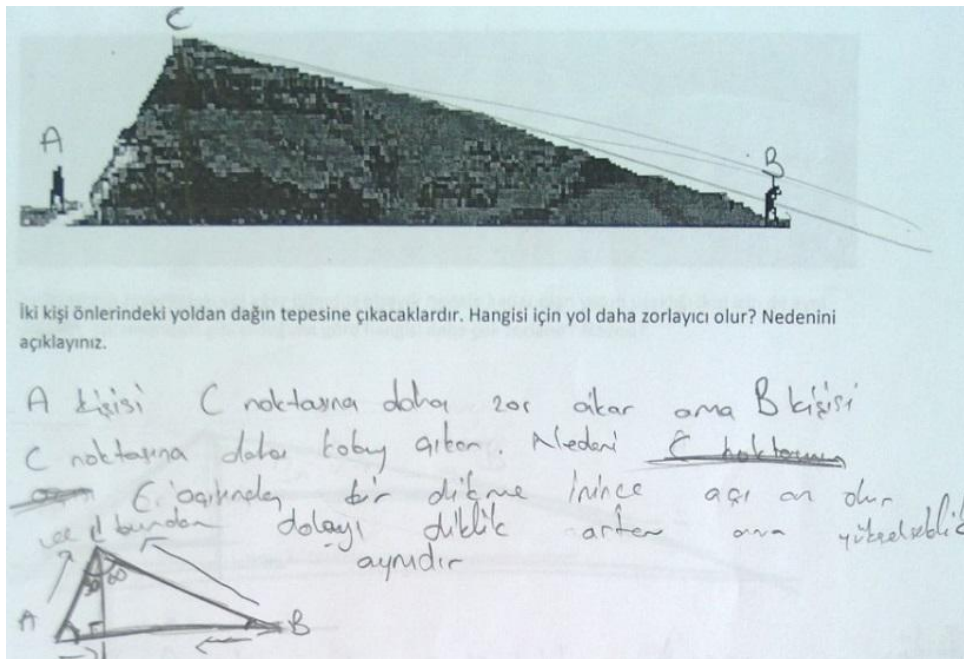 C
A
B
İki kişi önlerindeki yoldan dağın tepesine çıkacaklardır. Hangisi için yol daha zorlayıcı olur? Nedenini
açıklayınız.
A kişisi C noktasına daha zor çıkar ama B kişisi
C noktasına daha kolay çıkar. Nedeni
bir dikme inince açı olur
bundan dolayı diklik artar ama
aynıdır
30 60
A
B